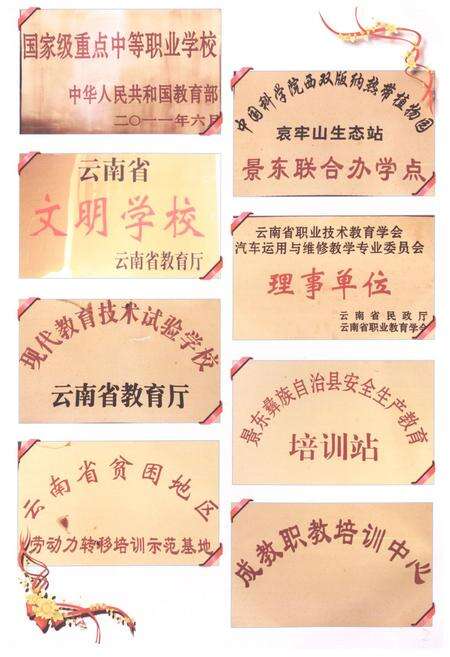 国家级重点中等职业学校
中华人民共和国教育部
二〇一一年六月
云南省
文明学校
云南省教育厅
现代教育技术试验学校
云南省教育厅
云南省贫困地区
劳动力转移培训示范基地
中国科学院西双版纳热带植物园
哀牢山生态站
景东联合办学点
云南省职业技术教育学会
汽车运用与维修教学专业委员会
理事单位
云南省民政厅
云南省职业教育学会
景东彝族自治县安全生产教育
培训站
成教职教培训中心